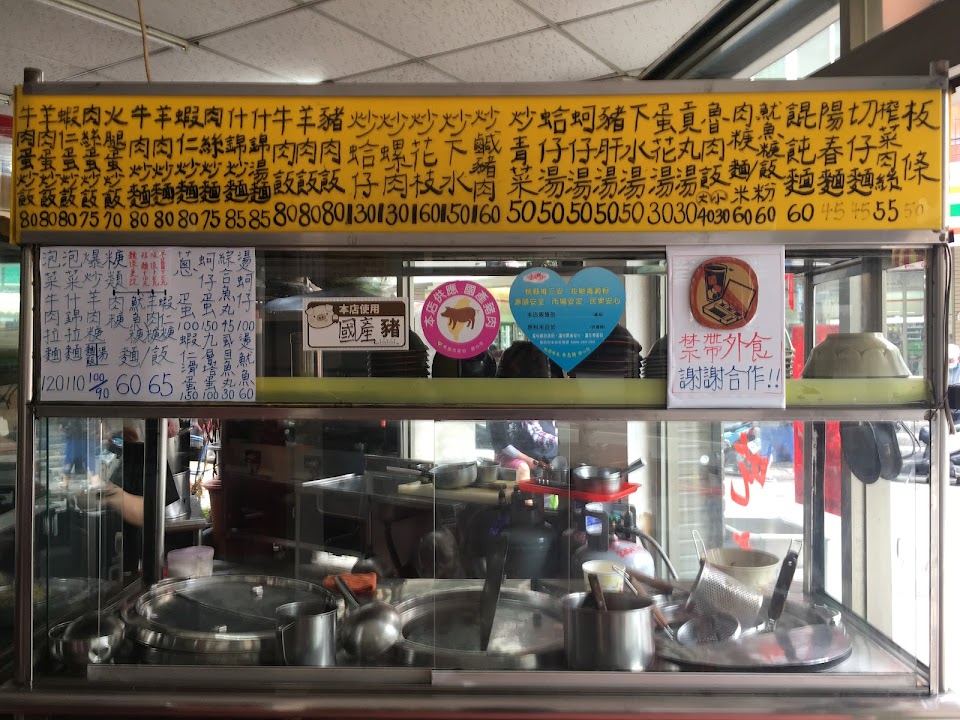 牛肉蛋炒飯 80
羊肉蛋炒飯 80
蝦仁蛋炒飯 80
肉絲蛋炒飯 75
火腿蛋炒飯 70
牛肉炒麵 80
羊肉炒麵 80
蝦仁炒麵 80
肉絲炒麵 75
什錦炒麵 85
什錦湯麵 85
牛肉飯 80
羊肉飯 80
豬肉飯 80
炒蛤仔 130
炒螺肉 130
炒花枝 160
炒下水 150
炒鹹豬肉 160
炒青菜 50
蛤仔湯 50
蚵仔湯 50
豬肝湯 50
下水湯 50
蛋花湯 30
貢丸湯 30
魯肉飯(大小) 40 30
肉糠麵米 60
魷魚糠飯粉 60
餛飩麵 60
陽春麵 45
切仔麵 45
榨菜肉絲 55
板條 50
泡菜牛肉拉麵 120
泡菜什錦拉麵 110
爆炒羊肉 100/90
糠類
肉糠
魷魚糠
蝦仁糠
麵/飯
60 65
蔥蛋 100
蚵仔蛋 150
綜合魚丸湯 45
燙蚵仔 100
蝦仁滑蛋 150
九層塔蛋 100
虱目魚丸 30
魷魚 60
本店使用
國產豬
本店供應 國產豬肉
禁帶外食
謝謝合作!!